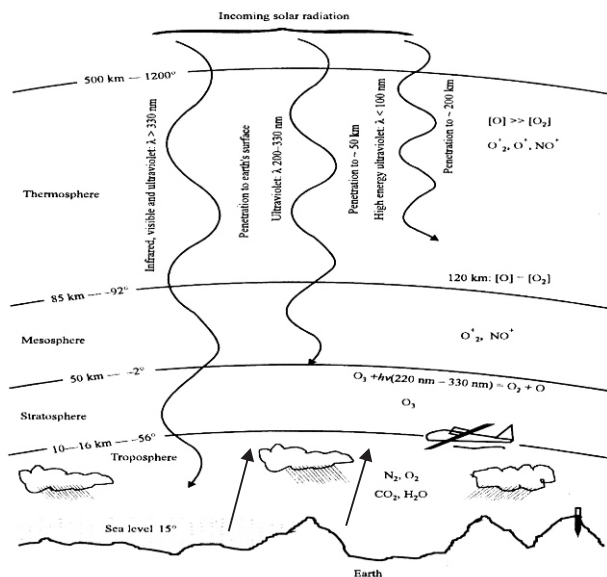 Incoming solar radiation
500 km — 1200°
Infrared, visible and ultraviolet: λ > 330 nm
Penetration to earth's surface
Ultraviolet: λ 200–330 nm
Penetration to ~ 50 km
High energy ultraviolet: λ < 100 nm
Penetration to ~ 200 km
[O] >> [O₂]
O⁺₂, O⁺, NO⁺
Thermosphere
120 km: [O] ~ [O₂]
85 km — –92°
Mesosphere
O⁺₂, NO⁺
50 km — –2°
O₃ + hν(220 nm – 330 nm) = O₂ + O
Stratosphere
O₃
10—16 km — –56°
Troposphere
N₂, O₂
CO₂, H₂O
Sea level 15°
Earth